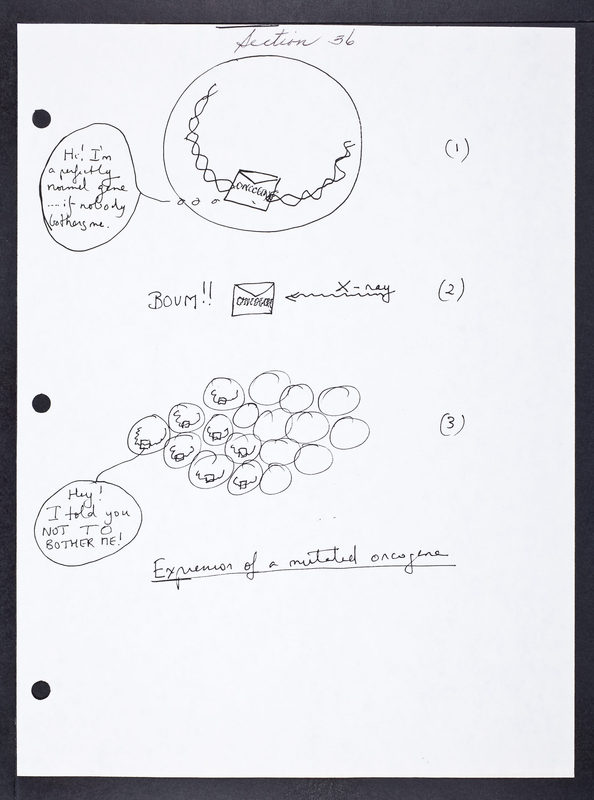 Section 36
Hi! I'm
a perfectly
normal gene
.... if nobody
bothers me.
ONCOGENE
(1)
BOUM!!
ONCOGENE
X-ray
(2)
(3)
Hey!
I told you
NOT TO
BOTHER ME!
Expression of a mutated oncogene